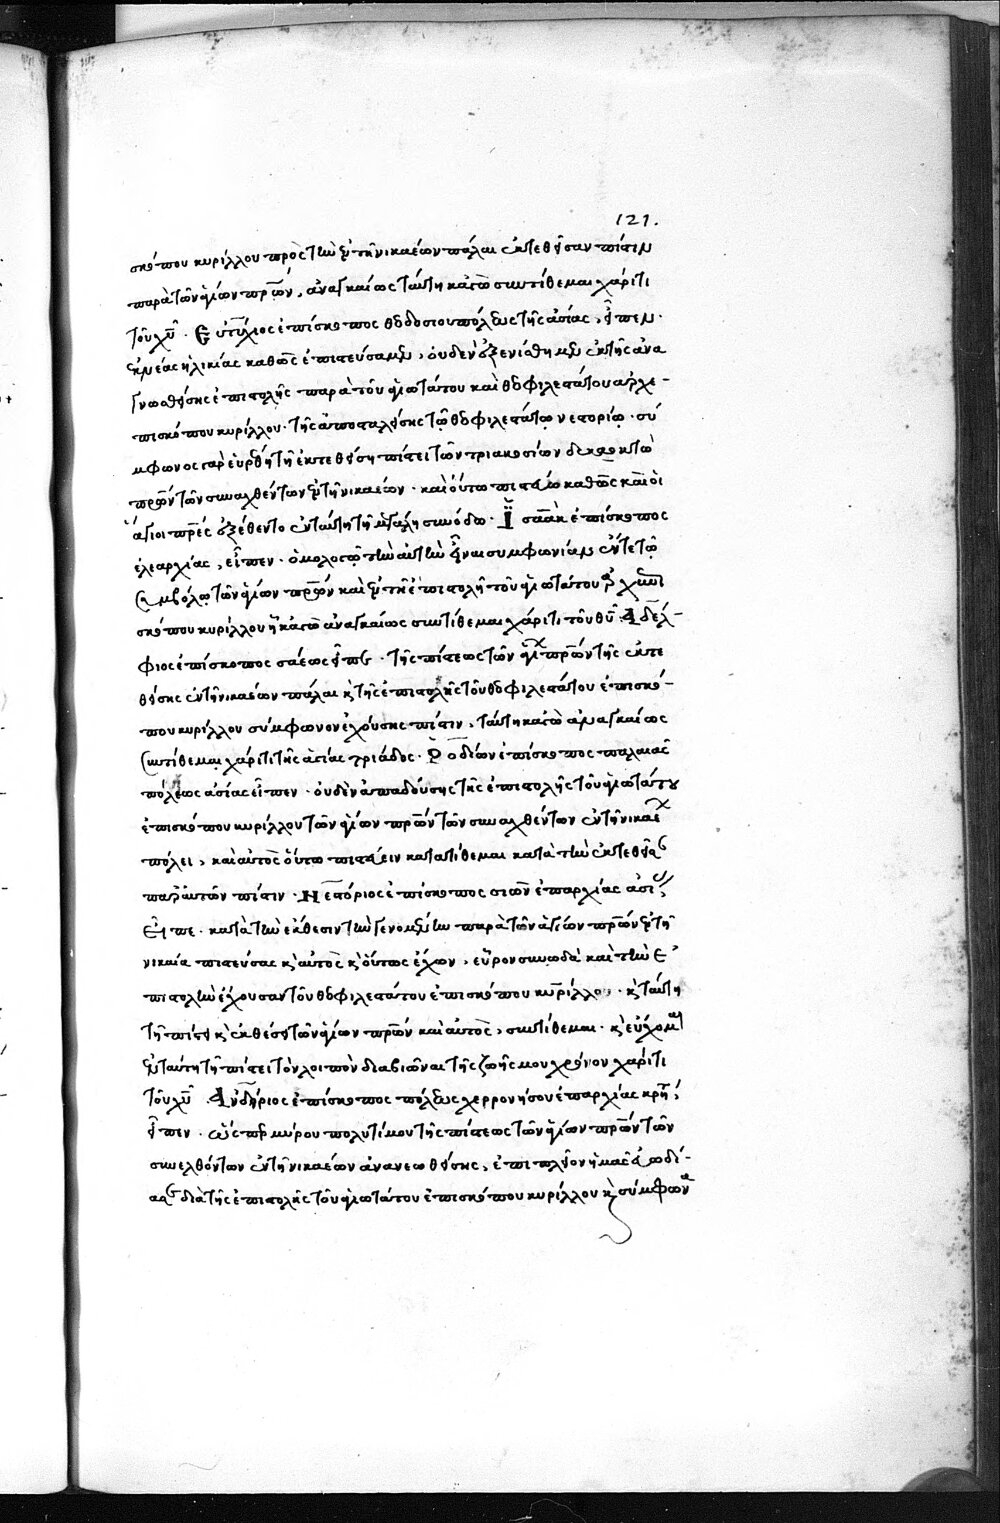 121.
σκόπου κυρίλλου πρὸς τὴν ἐν τῆ νικαέων πάλαι ἐκτεθεῖσαν πίστιν
παρὰ τῶν ἁγίων πρων, ἀναγκαίως ταύτη κἀγὼ συντίθεμαι χάριτι
τοῦ χυ. Εὐτύχιος ἐπίσκοπος θεοδοσιουπόλεως τῆς ἀσίας, εἶπεν.
ἐκ νέας ἡλικίας καθὼς ἐπιστεύσαμεν, οὐδὲν ἐξενίσθημεν ἐκ τῆς ἀνα
γνωσθείσης ἐπιστολῆς παρὰ τοῦ ἁγιωτάτου καὶ θεοφιλεστάτου ἀρχε-
πισκόπου κυρίλλου. τῆς ἀποσταλείσης τῶ θεοφιλεστάτω νεστορίω. σύ
μφωνος γὰρ εὑρέθη τῆ ἐκτεθείση πίστει τῶν τριακοσίων δεκαοκτὼ
πρων τῶν συναχθέντων ἐν τῆ νικαέων. καὶ οὕτω πιστεύω καθὼς καὶ οἱ
ἅγιοι πρες ἐξέθεντο ἐν ταύτη τῆ μεγάλη συνόδω. Ἰσαὰκ ἐπίσκοπος
ἐλεαρχίας, εἶπεν. ὁμολογῶ τὴν αὐτὴν εἶναι συμφωνίαν ἔν τε τῶ
συμβόλω τῶν ἁγίων πρων καὶ ἐν τῆ ἐπιστολῆ τοῦ ἁγιωτάτου ἀρχιεπι
σκόπου κυρίλλου ἧ κἀγὼ ἀναγκαίως συντίθεμαι χάριτι τοῦ θυ. Ἀδέλ-
φιος ἐπίσκοπος σάεως εἶπε. τῆς πίστεως τῶν ἁγι πρων τῆς ἐκτε
θείσης ἐν τῆ νικαέων πάλαι κ τῆς ἐπιστολῆς τοῦ θεοφιλεστάτου ἐπισκό-
που κυρίλλου σύμφωνον ἐχούσης πίστιν, ταύτη κἀγὼ ἀναγκαίως
συντίθεμαι χάριτι τῆς ἁγίας τριάδος. Ῥοδίων ἐπίσκοπος παλαιᾶς
πόλεως ἀσίας εἶπεν. οὐδὲν ἀπαδούσης τῆς ἐπιστολῆς τοῦ ἁγιωτάτου
ἐπισκόπου κυρίλλου τῶν ἁγίων πρων τῶν συναχθέντων ἐν τῆ νικαέων
πόλει, καὶ αὐτὸς οὕτω πιστεύειν κατατίθεμαι κατὰ τὴν ἐκτεθεῖσαν
παρ' αὐτῶν πίστιν. Νεστόριος ἐπίσκοπος σιῶν ἐπαρχίας ἀσίας,
εἶπε. κατὰ τὴν ἔκθεσιν τὴν γενομένην παρὰ τῶν ἁγίων πρων ἐν τῆ
νικαία πιστεύσας κ αὐτὸς κ οὕτως ἔχων, εὗρον συνωδὰ καὶ τὴν ἐ
πιστολὴν ἔχουσαν τοῦ θεοφιλεστάτου ἐπισκόπου κυρίλλου. κ ταύτη
τῆ πίστει κ ἐκθέσει τῶν ἁγίων πρων καὶ αὐτὸς, συντίθεμαι. κ εὔχομαι
ἐν ταύτη τῆ πίστει τὸν λοιπὸν διαβιῶναι τῆς ζωῆς μου χρόνον χάριτι
τοῦ χυ. Ἀνδήριος ἐπίσκοπος πόλεως χερρονήσου ἐπαρχίας κρητ,
εἶπεν. ὡς περ μύρου πολυτίμου τῆς πίστεως τῶν ἁγίων πρων τῶν
συνελθόντων ἐν τῆ νικαέων ἀνανεωθείσης, ἐπὶ πλεῖον ἡμᾶς εὐωδί-
ασε διὰ τῆς ἐπιστολῆς τοῦ ἁγιωτάτου ἐπισκόπου κυρίλλου κ σύμφωνα